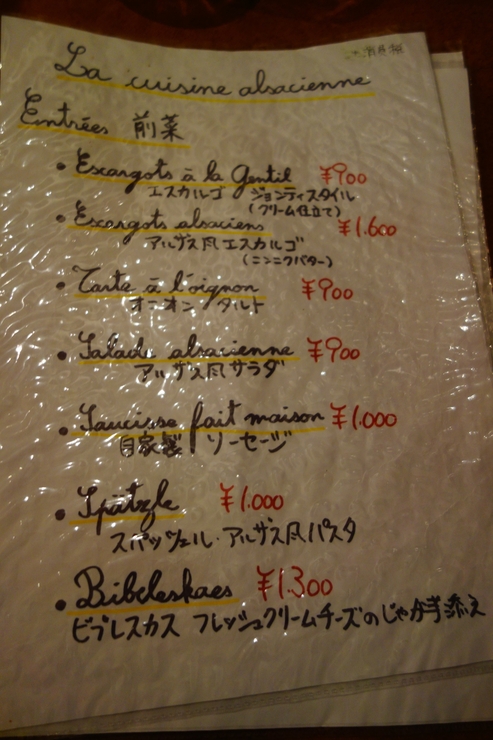 La cuisine alsacienne
Entrées 前菜
• Escargots à la Gentil ¥900
エスカルゴ ジョンティスタイル
(クリーム仕立て)
• Escargots alsaciens ¥1.600
アルザス風エスカルゴ
(ニンニクバター)
• Tarte à l'oignon ¥900
オニオンタルト
• Salade alsacienne ¥900
アルザス風サラダ
• Saucisse fait maison ¥1.000
自家製 ソーセージ
• Spätzle ¥1.000
スパッツェル・アルザス風パスタ
• Bibeleskaes ¥1.300
ビブレスカス フレッシュクリームチーズのじゃが芋添え